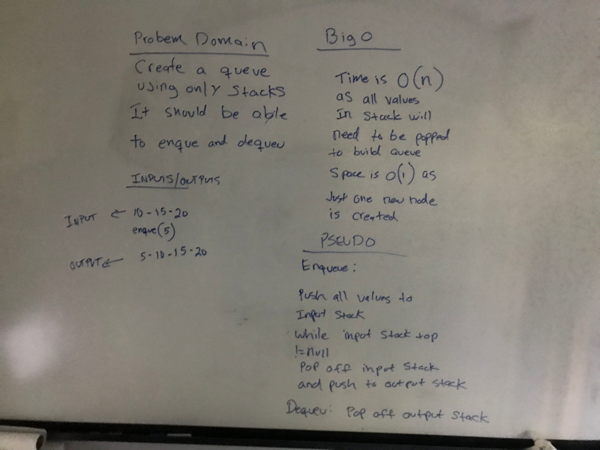 Probem Domain
Create a queue
using only Stacks
It should be able
to enque and dequeu
INPUTS/OUTPUTS
INPUT ← 10-15-20
enque(5)
OUTPUT ← 5-10-15-20
Big O
Time is O(n)
as all values
In Stack will
need to be popped
to build queue
Space is O(1) as
Just one new node
is created
PSEUDO
Enqueue:
Push all values to
Input Stack
While input Stack top
!= null
Pop off input Stack
and push to output stack
Dequeu: Pop off output Stack